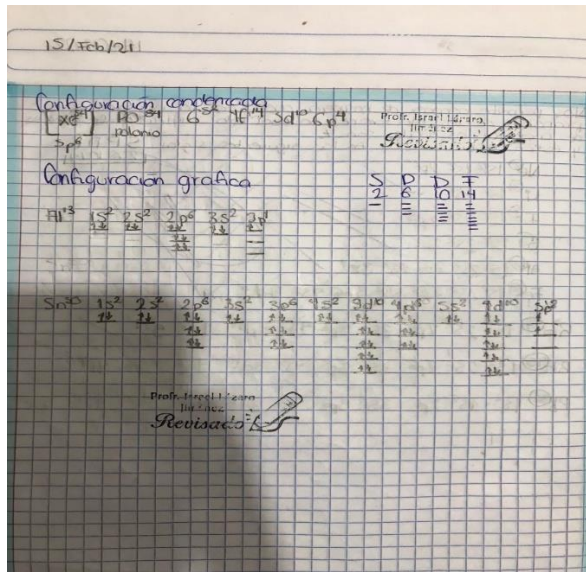 15/Feb/21
Configuración condencada
[Xe54] PO84 6s2 4f14 5d10 6p4
5p6 polonio
Profr. Israel Lázaro
Jiménez
Revisado
Configuración grafica
S P D F
2 6 10 14
Al13 1s2 2s2 2p6 3s2 3p1
Sn50 1s2 2s2 2p6 3s2 3p6 4s2 3d10 4p6 5s2 4d10 5p2
Profr. Israel Lázaro
Jiménez
Revisado